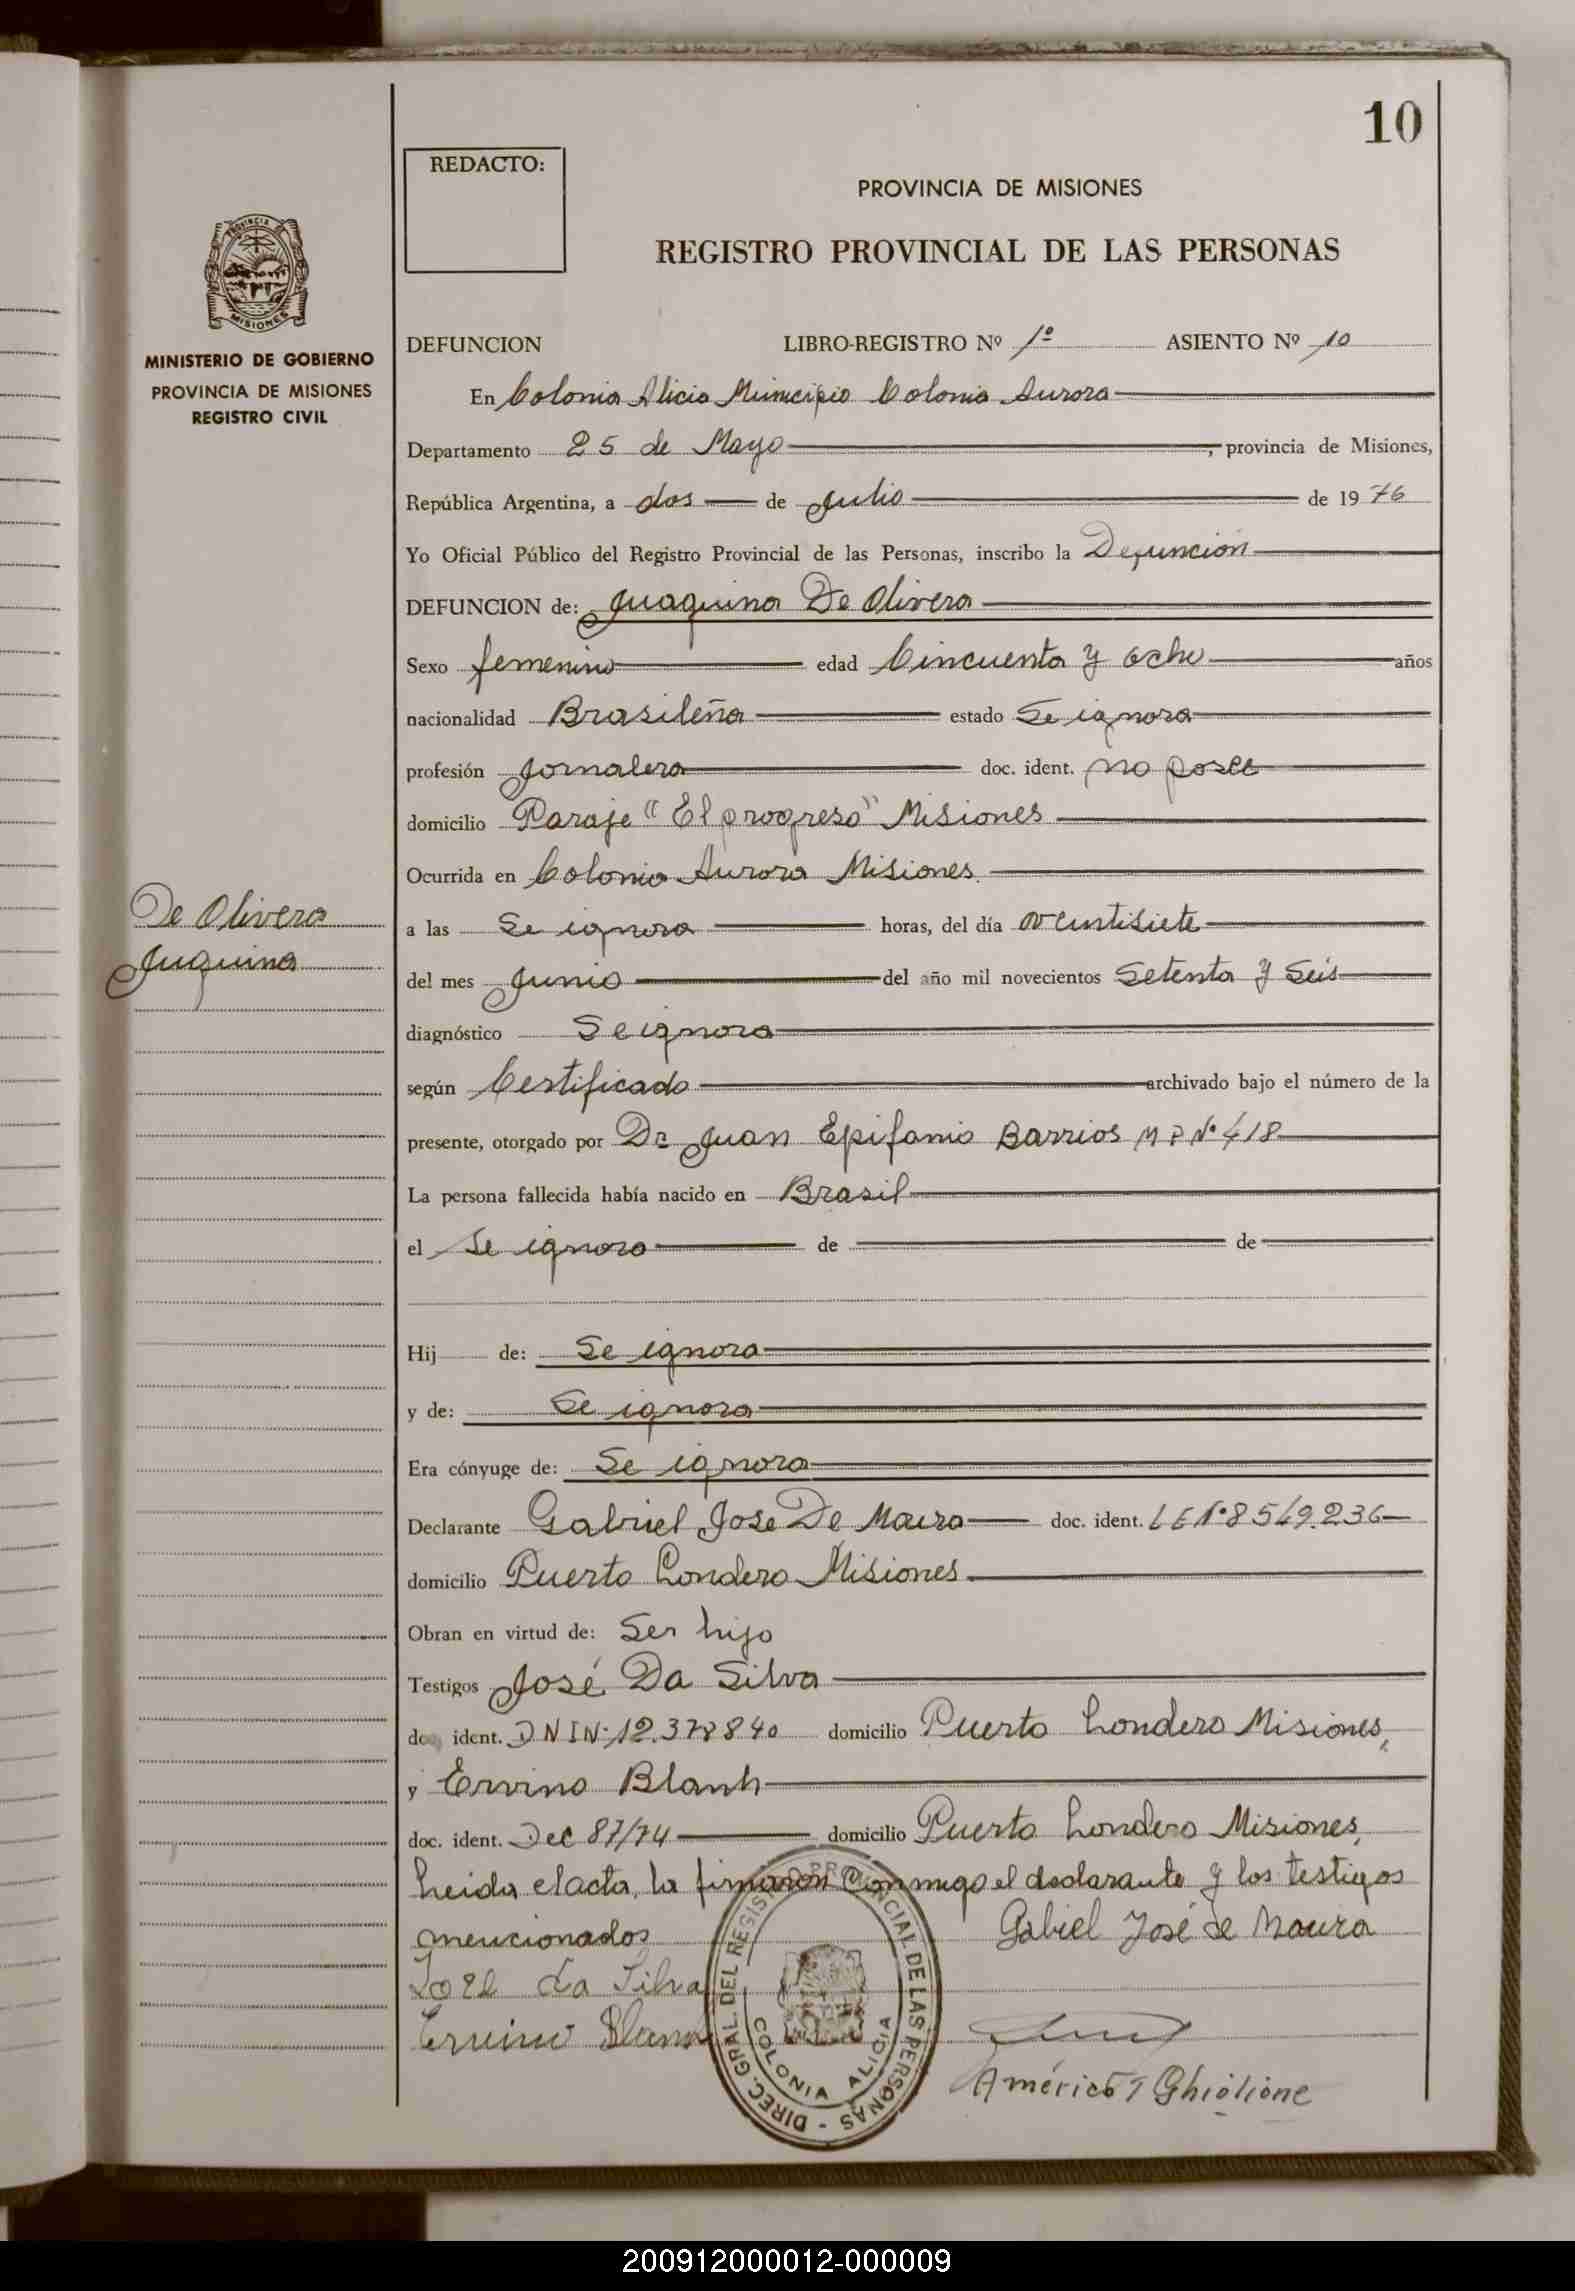 10
REDACTO:
PROVINCIA DE MISIONES
REGISTRO PROVINCIAL DE LAS PERSONAS
PROVINCIA
MISIONES
MINISTERIO DE GOBIERNO
PROVINCIA DE MISIONES
REGISTRO CIVIL
DEFUNCION LIBRO-REGISTRO Nº 1º ASIENTO Nº 10
En Colonia Alicia Municipio Colonia Aurora
Departamento 25 de Mayo, provincia de Misiones,
República Argentina, a dos de Julio de 1976
Yo Oficial Público del Registro Provincial de las Personas, inscribo la Defuncion
DEFUNCION de: Juaquina De Olivera
Sexo femenino edad Cincuenta y ocho años
nacionalidad Brasileña estado Se ignora
profesión Jornalera doc. ident. no posee
domicilio Paraje "El progreso" Misiones
Ocurrida en Colonia Aurora Misiones
De Olivera
Juquina
a las Se ignora horas, del día veintisiete
del mes Junio del año mil novecientos Setenta y Seis
diagnóstico Se ignora
según Certificado archivado bajo el número de la
presente, otorgado por Dr Juan Epifanio Barrios M P Nº 418
La persona fallecida había nacido en Brasil
el Se ignora de de
Hij de: Se ignora
y de: Se ignora
Era cónyuge de: Se ignora
Declarante Gabriel Jose De Maura doc. ident. L E Nº 8549.236
domicilio Puerto Londero Misiones
Obran en virtud de: Ser hijo
Testigos José Da Silva
doc ident. D N I N· 12.378840 domicilio Puerto Londero Misiones,
y Ervino Blanh
doc. ident. Dec 87/74 domicilio Puerto Londero Misiones,
Leida el acta, la firmaron Conmigo el declarante y los testigos
mencionados Gabiel José de Maura
José da Silva
Ervino Blanh
DIREC. GRAL DEL REGISTRO PROVINCIAL DE LAS PERSONAS -
COLONIA ALICIA
Américo Ghiglione
200912000012-000009